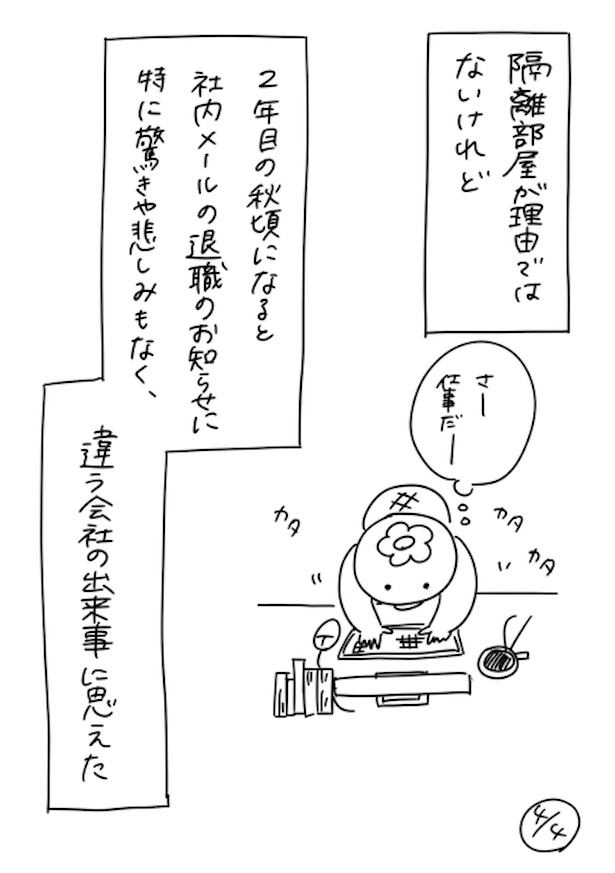 隔離部屋が理由では
ないけれど
2年目の秋頃になると
社内メールの退職のお知らせに
特に驚きや悲しみもなく、
違う会社の出来事に思えた
さー
仕事だー
カタ
カタ
カタ
4/4